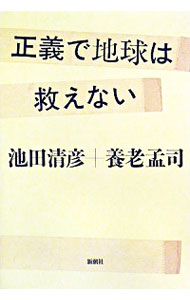 正義で地球は
救えない
池田清彦＋養老孟司
新潮社